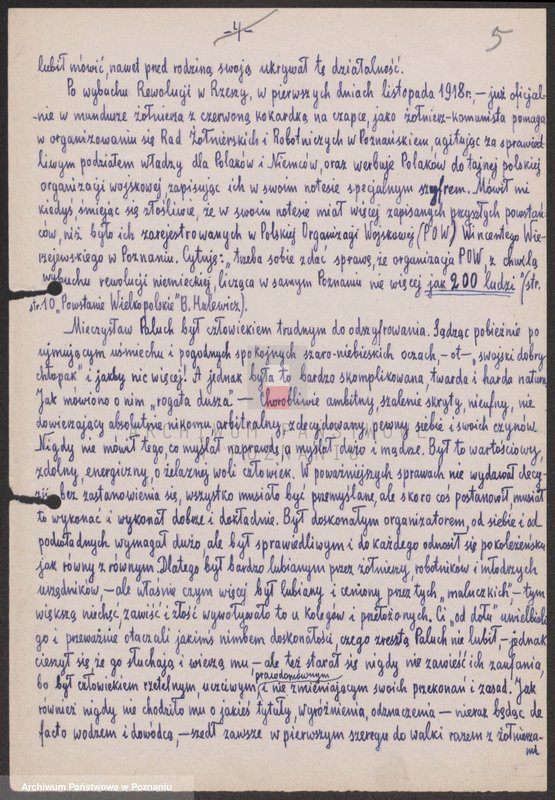 -4-
5
lubił mówić, nawet pred rodziną swoją ukrywał tę działalność.
Po wybuchu Rewolucji w Rzeszy, w pierwszych dniach listopada 1918r., — już oficjal-
nie w mundurze żołnierza z czerwoną kokardką na czapce, jako żołnierz-komunista pomaga
w organizowaniu się Rad Żołnierskich i Robotniczych w Poznańskiem, agitując za sprawied-
liwym podziałem władzy dla Polaków i Niemców, oraz werbuje Polaków do tajnej polskiej
organizacji wojskowej zapisując ich w swoim notesie specjalnym szyfrem. Mówił mi
kiedyś śmiejąc się złośliwie, że w swoim notesie miał więcej zapisanych przyszłych powstań-
ców, niż było ich zarejestrowanych w Polskiej Organizacji Wojskowej (POW) Wincentego Wie-
rzejewskiego w Poznaniu. Cytuję: „trzeba sobie zdać sprawę, że organizacja POW z chwilą
wybuchu rewolucji niemieckiej, liczącą w samym Poznaniu nie więcej jak 200 ludzi" (str.
str. 10 „Powstanie Wielkopolskie" B. Hulewicz).
Mieczysław Paluch był człowiekiem trudnym do odszyfrowania. Sądząc pobieżnie po
ujmującym uśmiechu i pogodnych spokojnych szaro-niebieskich oczach, — ot — „swojski dobry
chłopak" i jakby nic więcej! A jednak była to bardzo skomplikowana, twarda i harda natura
Jak mówiono o nim „rogata dusza" — chorobliwie ambitny, szalenie skryty, nieufny, nie
dowierzający absolutnie nikomu, arbitralny, zdecydowany, pewny siebie i swoich czynów.
Nigdy nie mówił tego, co myślał naprawdę, a myślał dużo i mądrze. Był to wartościowy,
zdolny, energiczny, o żelaznej woli człowiek. W poważniejszych sprawach nie wydawał decy-
zji bez zastanowienia się, wszystko musiało być przemyślane, ale skoro coś postanowił musiał
to wykonać i wykonał dobrze i dokładnie. Był doskonałym organizatorem, od siebie i od
podwładnych wymagał dużo ale był sprawiedliwym i do każdego odnosił się po koleżeńsku
jak równy z równym. Dlatego był bardzo lubianym przez żołnierzy, robotników i młodszych
urzędników, — ale właśnie czym więcej był lubiany i ceniony przez tych „maluczkich", — tym
większą niechęć, zawiść i złość wywoływało to u kolegów i przełożonych. Ci „od dołu" uwielbiali
go i przeważnie otaczali jakimś nimbem doskonałości, czego zresztą Paluch nie lubił — jednak
cieszył się że go słuchają i wierzą mu — ale też starał się nigdy nie zawieść ich zaufania,
bo był człowiekiem rzetelnym, uczciwym, prawdomównym i nie zmieniającym swoich przekonań i zasad. Jak
również nigdy nie chodziło mu o jakieś tytuły, wyróżnienia, odznaczenia — nieraz będąc de
facto wodzem i dowódcą, — szedł zawsze w pierwszym szeregu do walki razem z żołnierza-
mi.
Archiwum Państwowe w Poznaniu